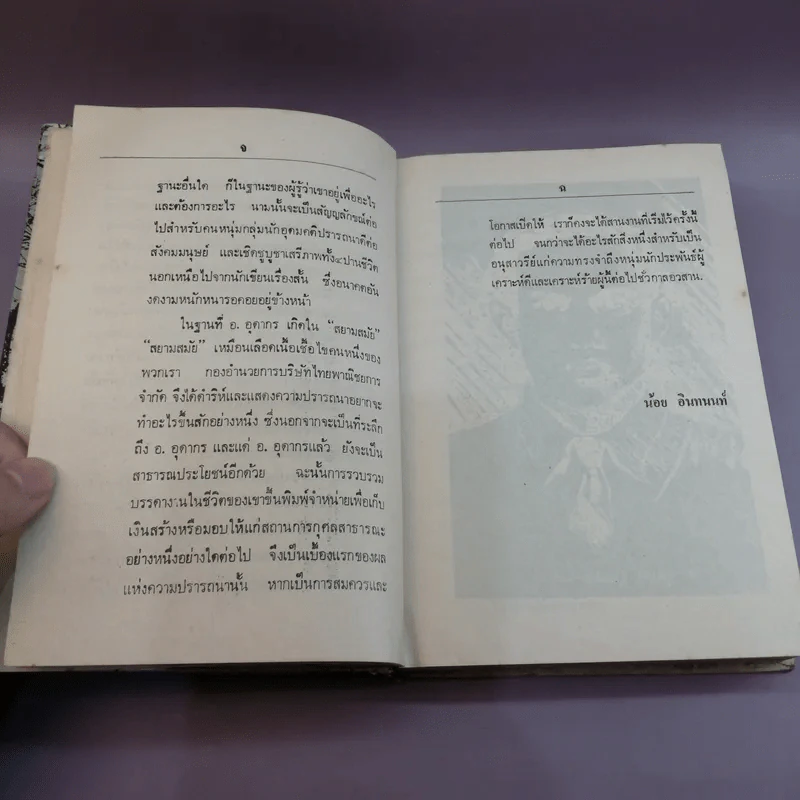 จ
ฐานะอื่นใด ก็ในฐานะของผู้รู้ว่าเขาอยู่เพื่ออะไร
และต้องการอะไร นามนั้นจะเป็นสัญญลักษณ์ต่อ
ไปสำหรับคนหนุ่มกลุ่มนักอุดมคติปรารถนาดีต่อ
สังคมมนุษย์ และเชิดชูบูชาเสรีภาพทั้ง๔ปานชีวิต
นอกเหนือไปจากนักเขียนเรื่องสั้น ซึ่งอนาคตอัน
งดงามหนักหนารอคอยอยู่ข้างหน้า
ในฐานที่ อ. อุดากร เกิดใน “สยามสมัย”
“สยามสมัย” เหมือนเลือดเนื้อเชื้อไขคนหนึ่งของ
พวกเรา กองอำนวยการบริษัทไทยพาณิชยการ
จำกัด จึงได้ดำริห์และแสดงความปรารถนาอยากจะ
ทำอะไรขึ้นสักอย่างหนึ่ง ซึ่งนอกจากจะเป็นที่ระลึก
ถึง อ. อุดากร และแด่ อ. อุดากรแล้ว ยังจะเป็น
สาธารณประโยชน์อีกด้วย ฉะนั้นการรวบรวม
บรรดางานในชีวิตของเขาขึ้นพิมพ์จำหน่ายเพื่อเก็บ
เงินสร้างหรือมอบให้แก่สถานการกุศลสาธารณะ
อย่างหนึ่งอย่างใดต่อไป จึงเป็นเบื้องแรกของผล
แห่งความปรารถนานั้น หากเป็นการสมควรและ
ฉ
โอกาสเปิดให้ เราก็คงจะได้สานงานที่เริ่มไว้ครั้งนี้
ต่อไป จนกว่าจะได้อะไรสักสิ่งหนึ่งสำหรับเป็น
อนุสาวรีย์แก่ความทรงจำถึงหนุ่มนักประพันธ์ผู้
เคราะห์ดีและเคราะห์ร้ายผู้นี้ต่อไปชั่วกาลอวสาน.
น้อย อินทนนท์